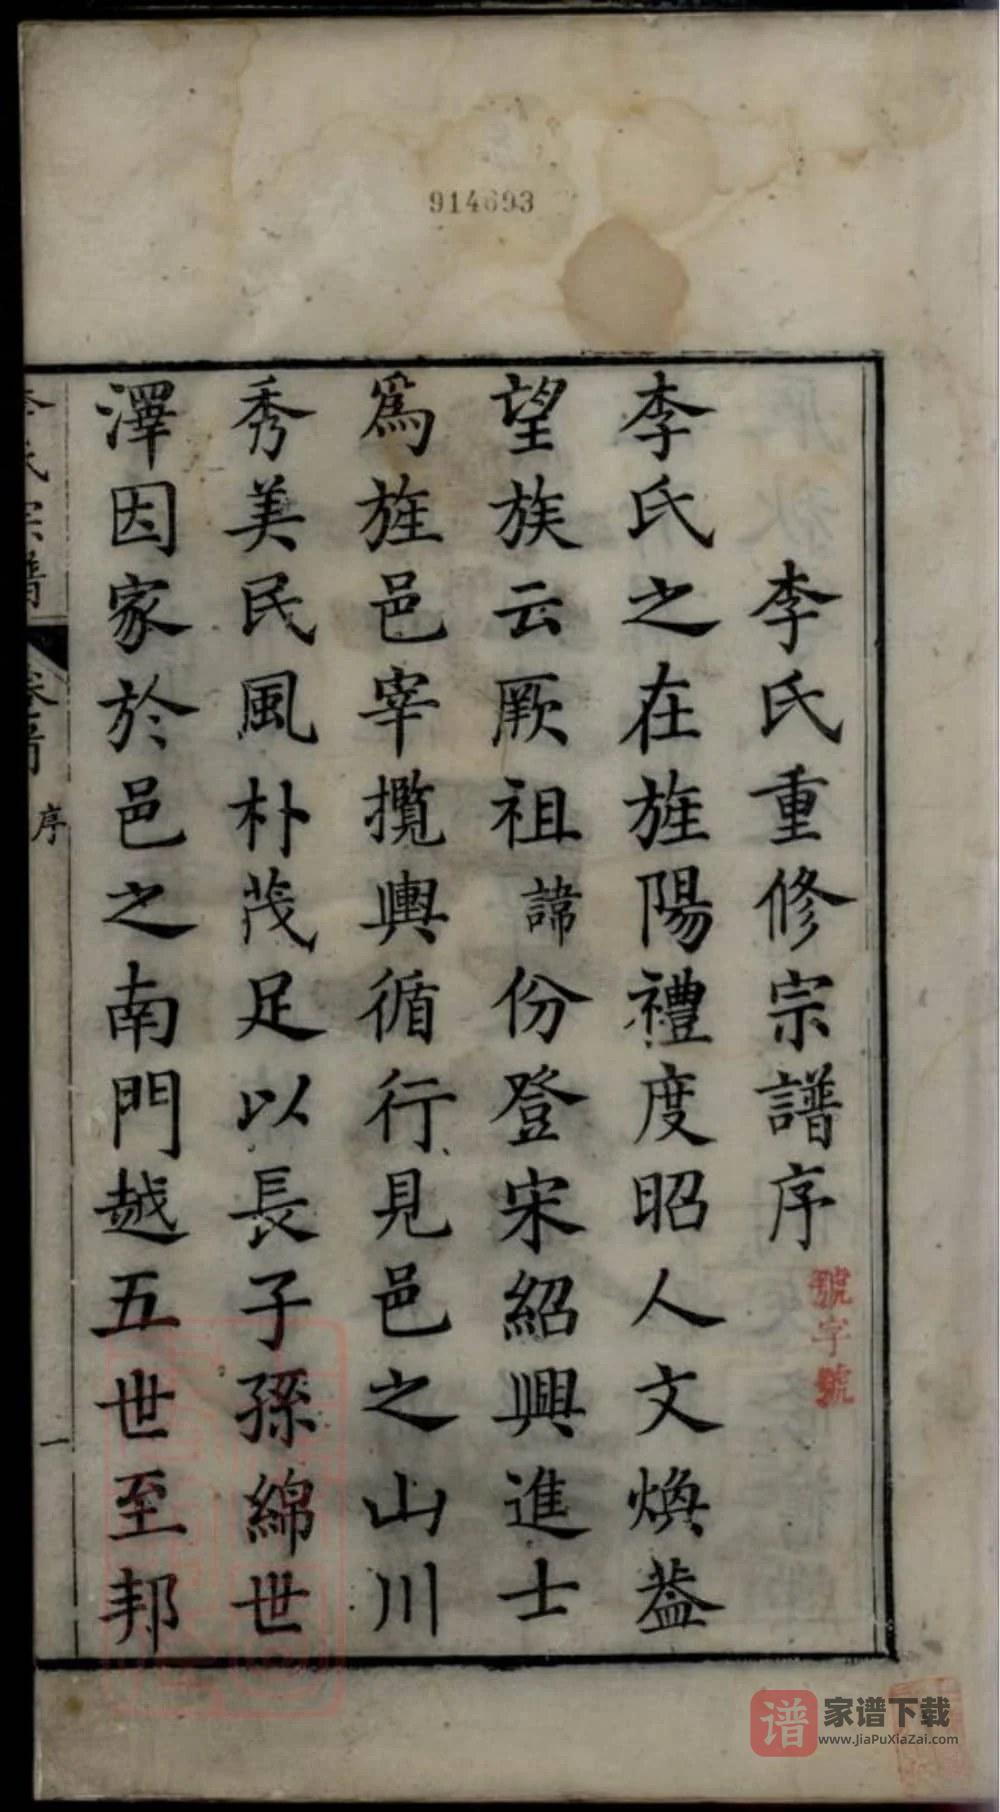 914693
李氏重修宗譜序
號字號
李氏之在旌陽禮度昭人文煥葢
望族云厥祖諱份登宋紹興進士
爲旌邑宰攬輿循行見邑之山川
秀美民風朴茂足以長子孫綿世
澤因家於邑之南門越五世至邦
李氏宗譜
序
一
谱 家谱下载
www.JiaPuXiaZai.com